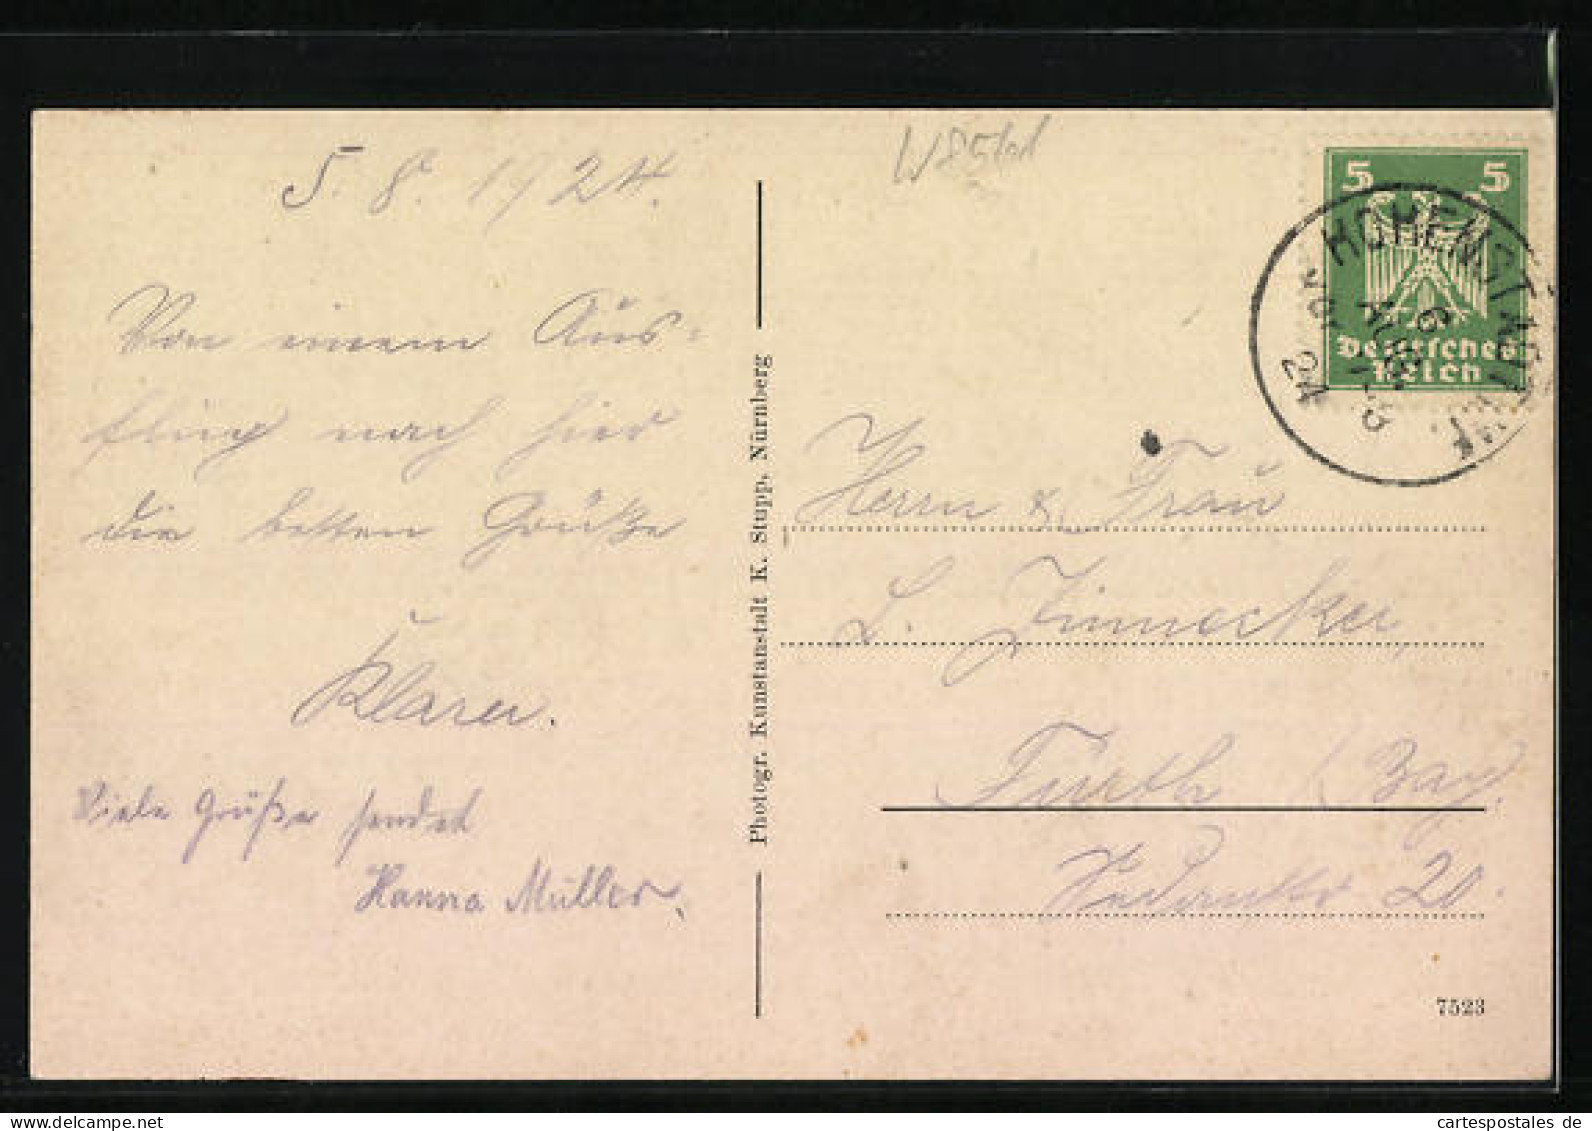 5. 8. 1924.
W8561
Von einem Aus-
flug nach hier
die besten Grüße
Klarer.
Viele Grüße sendet
Hanna Müller,
Photogr. Kunstanstalt K. Stupp, Nürnberg
5 5
Deutsches
Reich
HOHENST
6 AUG.
24
Herrn & Frau
L. Zinnecker,
Fürth (Bay.
20.
7523
cartespostales de